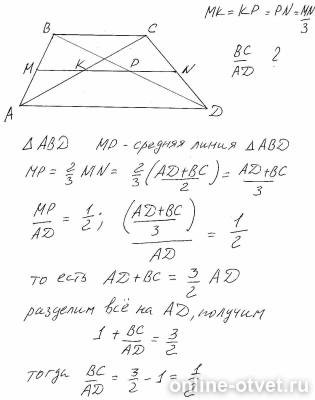 MK = KP = PN = MN/3
B C
BC/AD ?
M K P N
A D
△ABD MP - средняя линия △ABD
MP = 2/3 MN = 2/3 (AD+BC/2) = AD+BC/3
MP/AD = 1/2; (AD+BC/3)/AD = 1/2
то есть AD+BC = 3/2 AD
разделим всё на AD, получим
1 + BC/AD = 3/2
тогда BC/AD = 3/2 - 1 = 1/2
online-otvet.ru